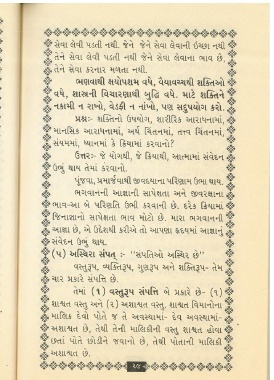 સેવા લેવી પડતી નથી. જેને જેને સેવા લેવાની ઇચ્છા નથી
તેને સેવા લેવી પડતી નથી જેને સેવા લેવાના ભાવ છે.
તેને સેવા કરનાર મળતા નથી.
ભણવાથી ક્ષયોપશમ વધે, વૈયાવચ્ચથી શક્તિઓ
વધે, શાસ્ત્રની વિચારણાથી બુદ્ધિ વધે. માટે શક્તિને
નકામી ન રાખો, વેડફી ન નાંખો, પણ સદુપયોગ કરો.
પ્રશ્ન:- શક્તિનો ઉપયોગ, શારીરિક આરાધનામાં,
માનસિક આરાધનામાં, અર્થ ચિંતનમાં, તત્ત્વ ચિંતનમાં,
સંયમમાં, ધ્યાનમાં કે ક્રિયામાં કરવાનો?
ઉત્તર:- જે યોગથી, જે ક્રિયાથી, આત્મામાં સંવેદન
ઉભું થાય તેમાં કરવાનો.
પૂંજવા, પ્રમાર્જવાથી જીવદયાના પરિણામ ઉભા થાય.
ભગવાનની આજ્ઞાની સાપેક્ષતા અને જીવરક્ષાના
ભાવ-આ બે પરિણતિ ઉભી કરવાની છે. દરેક ક્રિયામાં
જિનાજ્ઞાનો સાપેક્ષતા ભાવ મોટો છે. મારા ભગવાનની
આજ્ઞા છે, એ ઉદેશથી કરીએ તો આપણા હૃદયમાં આજ્ઞાનું
સંવેદન ઉભું થાય.
(૫) અસ્થિરા સંપત્ :- “સંપત્તિઓ અસ્થિર છે”
વસ્તુરૂપ, વ્યક્તિરૂપ, ગુણરૂપ અને શક્તિરૂપ- તેમ
ચાર પ્રકારે સંપત્તિ છે.
તેમાં (૧) વસ્તુરૂપ સંપત્તિ બે પ્રકારે છે- (૧)
શાશ્વત વસ્તુ અને (૨) અશાશ્વત વસ્તુ. શાશ્વત વિમાનોના
માલિક દેવો પોતે જ તે અવસ્થામાં- દેવ અવસ્થામાં-
અશાશ્વત છે, તેથી તેની માલિકીની વસ્તુ શાશ્વત હોવા
છતાં પોતે છોડીને જવાનો છે, તેથી પોતાની માલિકી
અશાશ્વત છે.